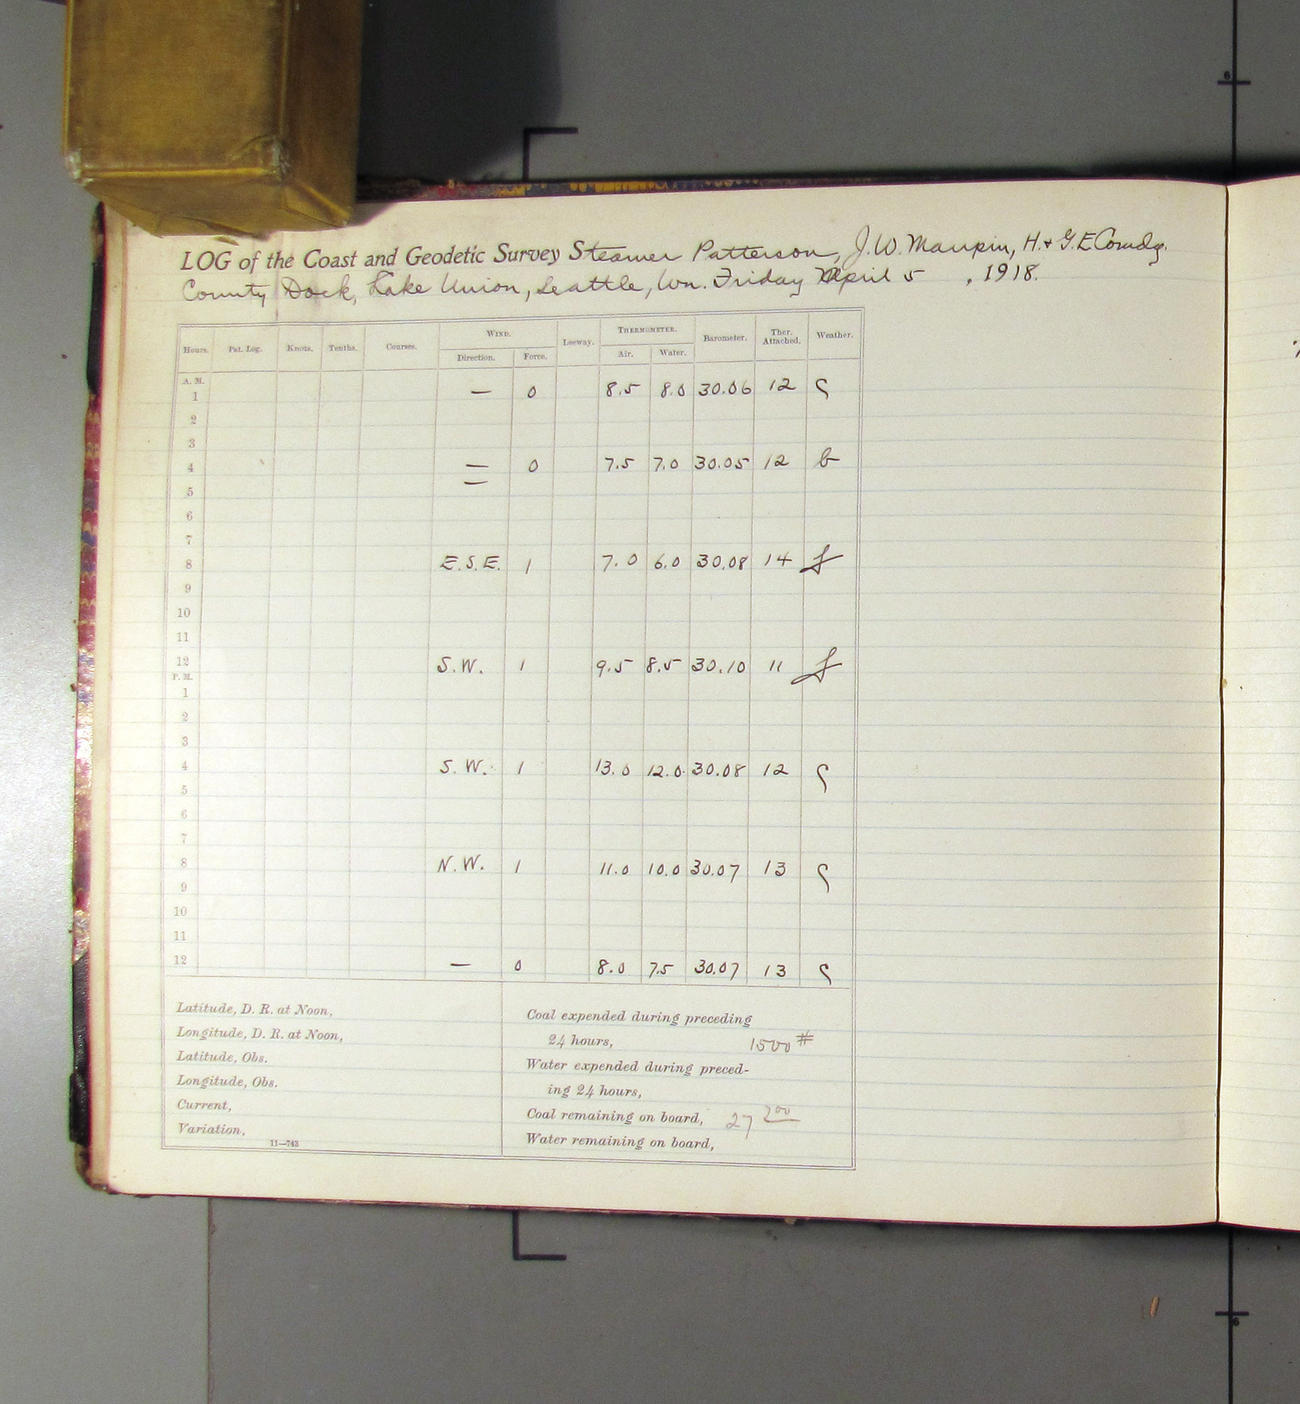 LOG of the Coast and Geodetic Survey Steamer Patterson, J.W. Maupin, H. & G.E Comdg.
County Dock, Lake Union, Seattle, Wn. Friday April 5, 1918.
Hours. Pat. Log. Knots. Tenths. Courses. WIND. Direction. Force. Leeway. THERMOMETER. Air. Water. Barometer. Ther. Attached. Weather.
A. M.
1 — 0 8.5 8.0 30.06 12 c
2
3
4 — 0 7.5 7.0 30.05 12 b
5
6
7
8 E.S.E. 1 7.0 6.0 30.08 14 f
9
10
11
12 S.W. 1 9.5 8.5 30.10 11 f
P. M.
1
2
3
4 S.W. 1 13.0 12.0 30.08 12 c
5
6
7
8 N.W. 1 11.0 10.0 30.07 13 c
9
10
11
12 — 0 8.0 7.5 30.07 13 c
Latitude, D. R. at Noon,
Longitude, D. R. at Noon,
Latitude, Obs.
Longitude, Obs.
Current,
Variation,
11—743
Coal expended during preceding
24 hours, 1500 #
Water expended during preced-
ing 24 hours,
Coal remaining on board, 27 200
Water remaining on board,
6
6